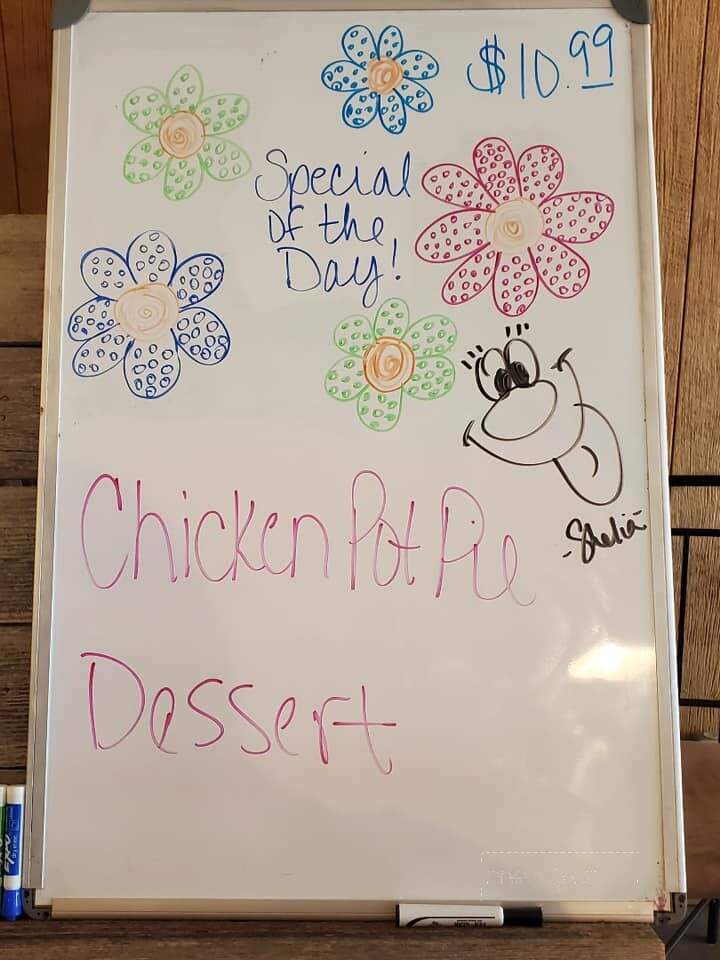 $10.99
Special
Of the
Day!
-Shelia-
Chicken Pot Pie
Dessert